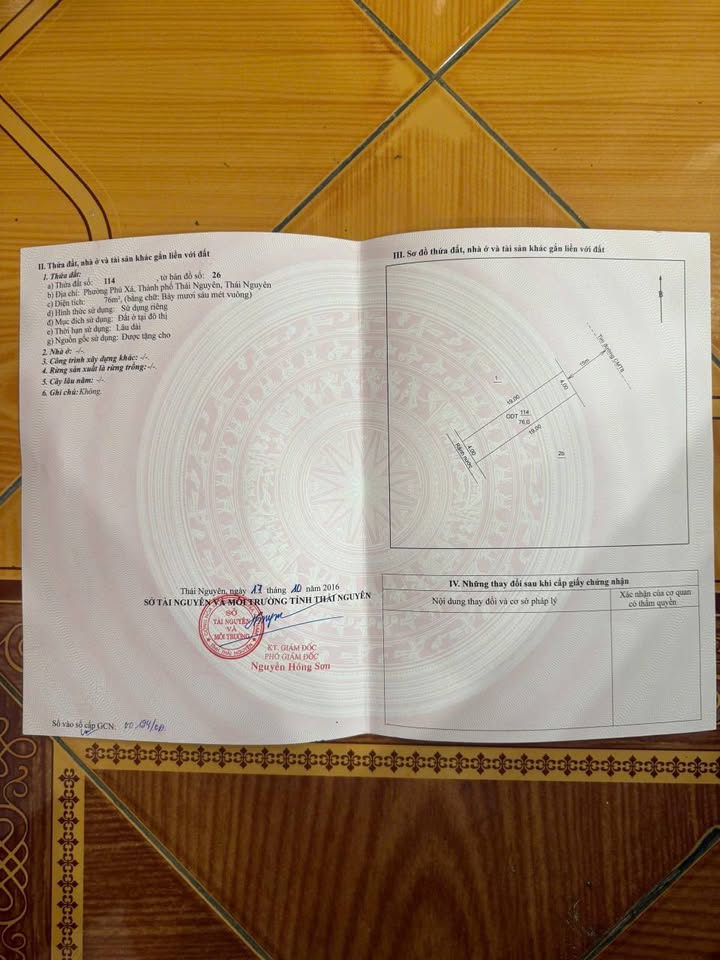 II. Thửa đất, nhà ở và tài sản khác gắn liền với đất
1. Thửa đất:
a) Thửa đất số: 114 , tờ bản đồ số: 26
b) Địa chỉ: Phường Phú Xá, Thành phố Thái Nguyên, Thái Nguyên
c) Diện tích: 76m², (bằng chữ: Bảy mươi sáu mét vuông)
d) Hình thức sử dụng: Sử dụng riêng
đ) Mục đích sử dụng: Đất ở tại đô thị
e) Thời hạn sử dụng: Lâu dài
g) Nguồn gốc sử dụng: Được tặng cho
2. Nhà ở: -/-.
3. Công trình xây dựng khác: -/-.
4. Rừng sản xuất là rừng trồng: -/-.
5. Cây lâu năm: -/-.
6. Ghi chú: Không.
Thái Nguyên, ngày 17 tháng 10 năm 2016
SỞ TÀI NGUYÊN VÀ MÔI TRƯỜNG TỈNH THÁI NGUYÊN
SỞ
TÀI NGUYÊN
VÀ
MÔI TRƯỜNG
KT. GIÁM ĐỐC
PHÓ GIÁM ĐỐC
Nguyễn Hồng Sơn
Số vào sổ cấp GCN:
III. Sơ đồ thửa đất, nhà ở và tài sản khác gắn liền với đất
B
Tim đường CMT8
15m
1
19.00
4.00
ODT 114
76.0
19.00
4.00
Rãnh nước
IV. Những thay đổi sau khi cấp giấy chứng nhận
Nội dung thay đổi và cơ sở pháp lý
Xác nhận của cơ quan
có thẩm quyền